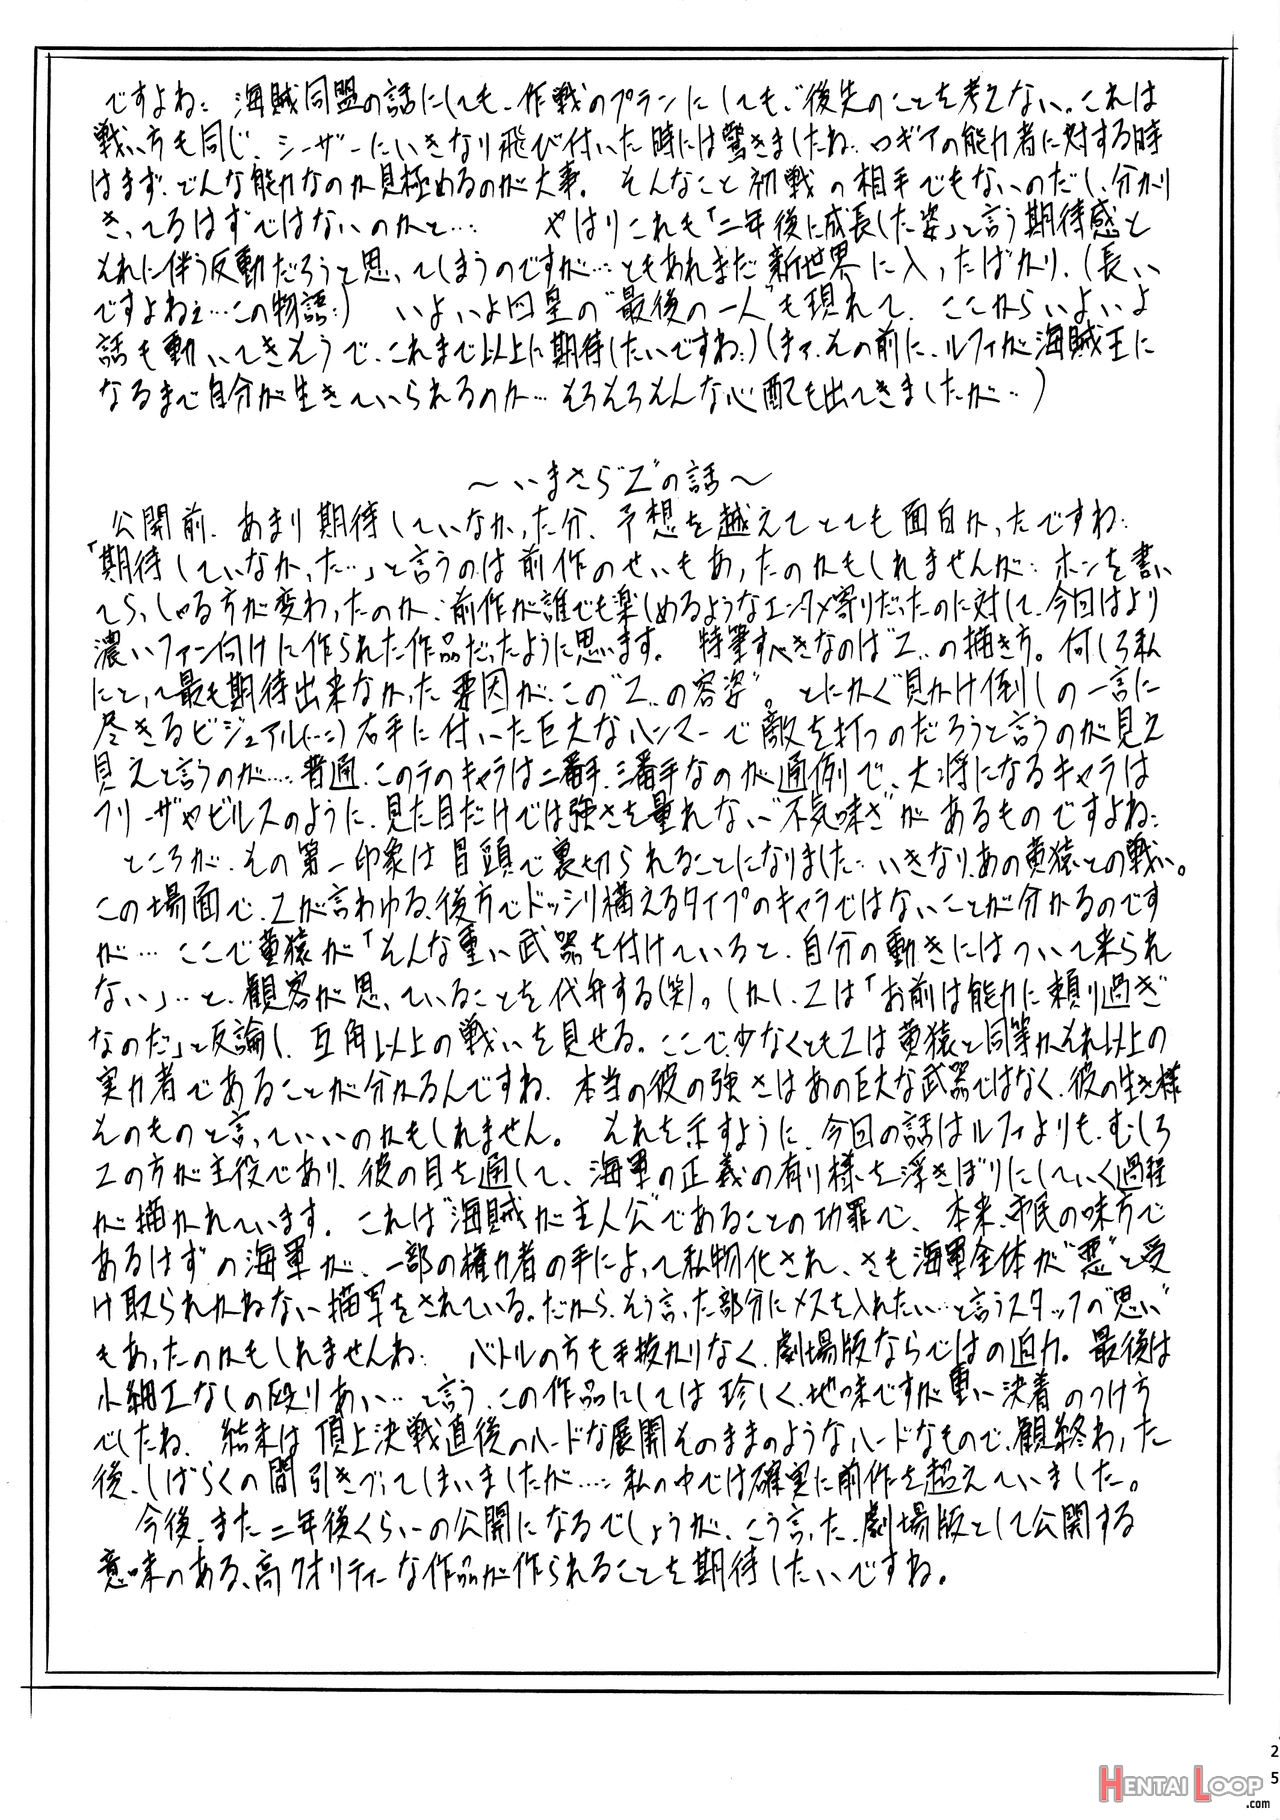 ですよね… 海賊同盟の話にしても、作戦のプランにしても、後先のことを考えない。これは
戦い方も同じ、シーザーにいきなり飛び付いた時には驚きましたね… ロギアの能力者に対する時
はまず、どんな能力なのか見極めるのが大事。 そんなこと初戦の相手でもないのだし、分かり
きってるはずではないのかと…… やはりこれも「二年後に成長した姿」と言う期待感と
それに伴う反動だろうと思ってしまうのですが…ともあれまだ新世界に入ったばかり、(長い
ですよねぇ…この物語…) いよいよ四皇の"最後の一人"も現れて、ここからいよいよ
話も動いてきそうで、これまで以上に期待したいですね…(まァ、その前に、ルフィが海賊王に
なるまで自分が生きていられるのか…そろそろそんな心配ても出てきましたが…)
～いまさら"Z"の話～
公開前、あまり期待していなかった分、予想を越えてとても面白かったですね…
「期待していなかった…」と言うのは前作のせいもあったのかもしれませんが…ホンを書い
てらっしゃる方が変わったのか、前作が誰でも楽しめるようなエンタメ寄りだったのに対して、今回はより
濃いファン向けに作られた作品だったように思います。 特筆すべきなのは"Z"の描き方。何しろ私
にとって最も期待出来なかった要因が、この"Z"の容姿"。とにかく"見かけ倒しの一言に
尽きるビジュアル(…) 右手に付いた巨大なハンマーで敵を打つのだろうと言うのが見え
見えと言うのが…… 普通、このテのキャラは二番手、三番手なのが通例で、大将になるキャラは
フリーザやビルスのように、見た目だけでは強さを量れない"不気味さ"があるものですよね…
ところが、その第一印象は冒頭で裏切られることになりました…いきなり、あの黄猿との戦い。
この場面で、Zが言わゆる、後方でドッシリ構えるタイプのキャラではないことが分かるのです
が… ここで黄猿が「そんな重い武器を付けていると、自分の動きにはついて来られ
ない」…と、観客が思っていることを代弁する(笑)。しかし、Zは「お前は能力に頼り過ぎ
なのだ」と反論し、互角以上の戦いを見せる。ここで、少なくともZは黄猿と同等かそれ以上の
実力者であることが分かるんですね、本当の彼の強さはあの巨大な武器ではなく、彼の生き様
そのものと言っていいのかもしれません。 それを示すように、今回の話はルフィよりも、むしろ
Zの方が主役であり、彼の目を通して、海軍の正義の有り様を浮きぼりにしていく過程
が描かれています。 これは"海賊が主人公"であることの功罪で、本来、市民の味方で
あるはずの海軍が、一部の権力者の手によって私物化され、さも海軍全体が"悪"と受
け取られかねない描写をされている。だから、そう言った部分にメスを入れたい…と言うスタッフの"思い"
もあったのかもしれませんね… バトルの方も手抜かりなく、劇場版ならではの迫力。最後は
小細工なしの殴りあい…と言う、この作品にしては珍しく、地味ですが重い決着のつけ方
でしたね、 結末は頂上決戦直後のハードな展開そのままのようなハードなもので、観終わった
後、しばらくの間引きづってしまいましたが……私の中では確実に前作を超えていました。
今後、また二年後くらいの公開になるでしょうが、こう言った、劇場版として公開する
意味のある、高クオリティーな作品が作られることを期待したいですね。
25
HENTAI LOOP
.com